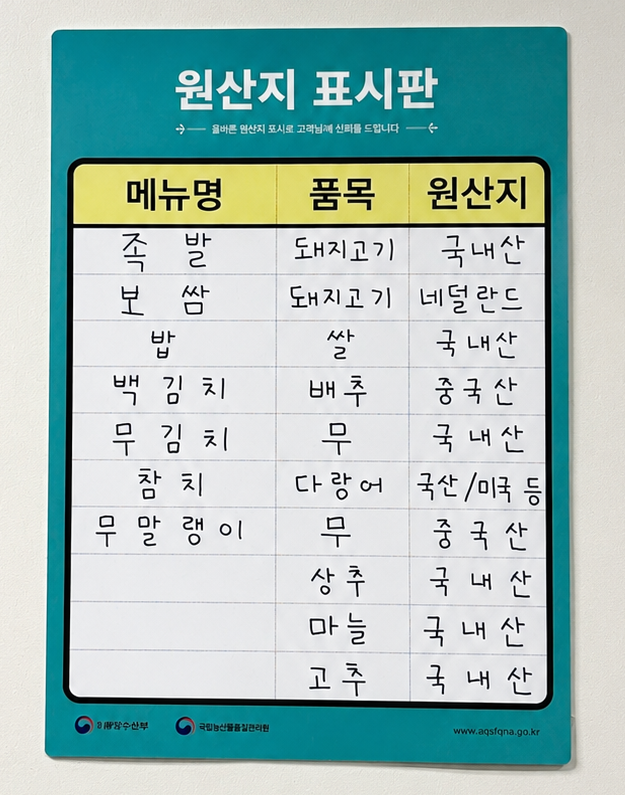 원산지 표시판
올바른 원산지 표시로 고객님께 신뢰를 드립니다
메뉴명 품목 원산지
족발 돼지고기 국내산
보쌈 돼지고기 네덜란드
밥 쌀 국내산
백김치 배추 중국산
무김치 무 국내산
참치 다랑어 국산/미국 등
무말랭이 무 중국산
상추 국내산
마늘 국내산
고추 국내산
국립농산물품질관리원 www.aqsfqna.go.kr